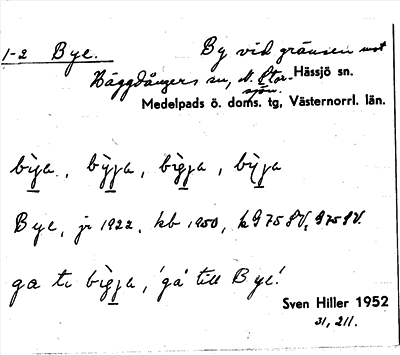 1-2 Bye. By vid gränsen mot
Häggdångers sn, N. Stor-
sjön. Hässjö sn.
Medelpads ö. doms. tg, Västernorrl. län.
bìja, bỳja, bìgja, bỳja
Bye, jr 1922, kb 1950, k9 75 SV, 975 SV.
ga ti bìgja, 'gå till Bye'.
Sven Hiller 1952
31, 211.